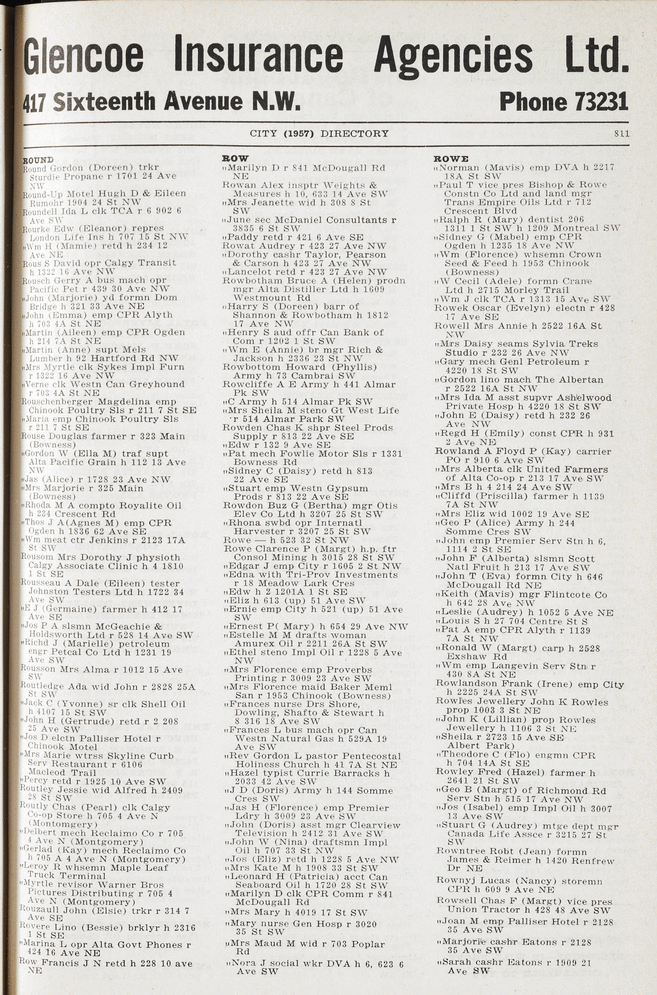 Glencoe Insurance Agencies Ltd.
417 Sixteenth Avenue N.W. Phone 73231
CITY (1957) DIRECTORY 811
ROUND
Round Gordon (Doreen) trkr
Sturdie Propane r 1701 24 Ave
NW
Round-Up Motel Hugh D & Eileen
Rumohr 1904 24 St NW
Roundell Ida L clk TCA r 6 902 6
Ave SW
Rourke Edw (Eleanor) repres
London Life Ins h 707 15 St NW
„Wm H (Mamie) retd h 234 12
Ave NE
Rous S David opr Calgy Transit
h 1322 16 Ave NW
Rousch Gerry A bus mach opr
Pacific Pet r 439 30 Ave NW
„John (Marjorie) yd formn Dom
Bridge h 321 33 Ave NE
„John (Emma) emp CPR Alyth
h 703 4A St NE
„Martin (Aileen) emp CPR Ogden
h 214 7A St NE
„Martin (Anne) supt Mels
Lumber h 92 Hartford Rd NW
„Mrs Myrtle clk Sykes Impl Furn
r 1322 16 Ave NW
„Verne clk Westn Can Greyhound
r 703 4A St NE
Rouschenberger Magdelina emp
Chinook Poultry Sls r 211 7 St SE
„Maria emp Chinook Poultry Sls
r 211 7 St SE
Rouse Douglas farmer r 323 Main
(Bowness)
„Gordon W (Ella M) traf supt
Alta Pacific Grain h 112 13 Ave
NW
„Jas (Alice) r 1728 23 Ave NW
„Mrs Marjorie r 325 Main
(Bowness)
„Rhoda M A compto Royalite Oil
h 234 Crescent Rd
„Thos J A(Agnes M) emp CPR
Ogden h 1836 62 Ave SE
„Wm meat ctr Jenkins r 2123 17A
St SW
Rousom Mrs Dorothy J physioth
Calgy Associate Clinic h 4 1810
1 St SE
Rousseau A Dale (Eileen) tester
Johnston Testers Ltd h 1722 34
Ave SW
„E J (Germaine) farmer h 412 17
Ave SE
„Jos P A slsmn McGeachie &
Holdsworth Ltd r 528 14 Ave SW
„Richd J (Marielle) petroleum
engr Petcal Co Ltd h 1231 19
Ave SW
Rousson Mrs Alma r 1012 15 Ave
SW
Routledge Ada wid John r 2828 25A
St SW
„Jack C (Yvonne) sr clk Shell Oil
h 4107 15 St SW
„John H (Gertrude) retd r 2 208
25 Ave SW
„Jos D elctn Palliser Hotel r
Chinook Motel
„Mrs Marie wtrss Skyline Curb
Serv Restaurant r 6106
Macleod Trail
„Percy retd r 1925 10 Ave SW
Routley Jessie wid Alfred h 2409
28 St SW
Routly Chas (Pearl) clk Calgy
Co-op Store h 705 4 Ave N
(Montomgery)
„Delbert mech Reclaimo Co r 705
4 Ave N (Montgomery)
„Gerlad (Kay) mech Reclaimo Co
h 705 A 4 Ave N (Montgomery)
„Leroy R whsemn Maple Leaf
Truck Terminal
„Myrtle revisor Warner Bros
Pictures Distributing r 705 4
Ave N (Montgomery)
Rouzaull John (Elsie) trkr r 314 7
Ave SE
Rovere Lino (Bessie) brklyr h 2316
1 St SE
„Marina L opr Alta Govt Phones r
424 16 Ave NE
Row Francis J N retd h 228 10 ave
NE
ROW
„Marilyn D r 841 McDougall Rd
NE
Rowan Alex insptr Weights &
Measures h 10, 633 14 Ave SW
„Mrs Jeanette wid h 308 8 St
SW
„June sec McDaniel Consultants r
3835 6 St SW
„Paddy retd r 421 6 Ave SE
Rowat Audrey r 423 27 Ave NW
„Dorothy cashr Taylor, Pearson
& Carson h 423 27 Ave NW
„Lancelot retd r 423 27 Ave NW
Rowbotham Bruce A (Helen) prodn
mgr Alta Distiller Ltd h 1609
Westmount Rd
„Harry S (Doreen) barr of
Shannon & Rowbotham h 1812
17 Ave NW
„Henry S aud offr Can Bank of
Com r 1202 1 St SW
„Wm E (Annie) br mgr Rich &
Jackson h 2336 23 St NW
Rowbottom Howard (Phyllis)
Army h 73 Cambrai SW
Rowcliffe A E Army h 441 Almar
Pk SW
„C Army h 514 Almar Pk SW
„Mrs Sheila M steno Gt West Life
r 514 Almar Park SW
Rowden Chas K shpr Steel Prods
Supply r 813 22 Ave SE
„Edw r 132 9 Ave SE
„Pat mech Fowlie Motor Sls r 1331
Bowness Rd
„Sidney C (Daisy) retd h 813
22 Ave SE
„Stuart emp Westn Gypsum
Prods r 813 22 Ave SE
Rowdon Buz G (Bertha) mgr Otis
Elev Co Ltd h 3207 25 St SW
„Rhona swbd opr Internatl
Harvester r 3207 25 St SW
Rowe — h 523 32 St NW
Rowe Clarence P (Margt) h.p. ftr
Consol Mining h 3015 28 St SW
„Edgar J emp City r 1605 2 St NW
„Edna with Tri-Prov Investments
r 18 Meadow Lark Cres
„Edw h 2 1201A 1 St SE
„Eliz h 613 (up) 51 Ave SW
„Ernie emp City h 521 (up) 51 Ave
SW
„Ernest P( Mary) h 654 29 Ave NW
„Estelle M M drafts woman
Amurex Oil r 2211 26A St SW
„Ethel steno Impl Oil r 1228 5 Ave
NW
„Mrs Florence emp Proverbs
Printing r 3009 23 Ave SW
„Mrs Florence maid Baker Meml
San r 1953 Chinook (Bowness)
„Frances nurse Drs Shore,
Dowling, Shafto & Stewart h
8 316 18 Ave SW
„Frances L bus mach opr Can
Westn Natural Gas h 529A 19
Ave SW
„Rev Gordon L pastor Pentecostal
Holiness Church h 41 7A St NE
„Hazel typist Currie Barracks h
2033 42 Ave SW
„J D (Doris) Army h 144 Somme
Cres SW
„Jas H (Florence) emp Premier
Ldry h 3009 23 Ave SW
„John (Doris) asst mgr Clearview
Television h 2412 31 Ave SW
„John W (Nina) draftsmn Impl
Oil h 707 33 St NW
„Jos (Eliz) retd h 1228 5 Ave NW
„Mrs Kate M h 1908 33 St SW
„Leonard H (Patricia) acct Can
Seaboard Oil h 1720 28 St SW
„Marilyn D clk CPR Comm r 841
McDougall Rd
„Mrs Mary h 4019 17 St SW
„Mary nurse Gen Hosp r 3020
35 St SW
„Mrs Maud M wid r 703 Poplar
Rd
„Nora J social wkr DVA h 6, 623 6
Ave SW
ROWE
„Norman (Mavis) emp DVA h 2217
18A St SW
„Paul T vice pres Bishop & Rowe
Constn Co Ltd and land mgr
Trans Empire Oils Ltd r 712
Crescent Blvd
„Ralph R (Mary) dentist 206
1311 1 St SW h 1209 Montreal SW
„Sidney G (Mabel) emp CPR
Ogden h 1235 18 Ave NW
„Wm (Florence) whsemn Crown
Seed & Feed h 1953 Chinook
(Bowness)
„W Cecil (Adele) formn Crane
Ltd h 2715 Morley Trail
„Wm J clk TCA r 1313 15 Ave SW
Rowek Oscar (Evelyn) electn r 428
17 Ave SE
Rowell Mrs Annie h 2522 16A St
NW
„Mrs Daisy seams Sylvia Treks
Studio r 232 26 Ave NW
„Gary mech Genl Petroleum r
4220 18 St SW
„Gordon lino mach The Albertan
r 2522 16A St NW
„Mrs Ida M asst supvr Ashelwood
Private Hosp h 4220 18 St SW
„John E (Daisy) retd h 232 26
Ave NW
„Regd H (Emily) const CPR h 931
2 Ave NE
Rowland A Floyd P (Kay) carrier
PO r 910 6 Ave SW
„Mrs Alberta clk United Farmers
of Alta Co-op r 213 17 Ave SW
„Mrs B h 4 214 24 Ave SW
„Cliffd (Priscilla) farmer h 1139
7A St NW
„Mrs Eliz wid 1002 19 Ave SE
„Geo P (Alice) Army h 244
Somme Cres SW
„John emp Premier Serv Stn h 6,
1114 2 St SE
„John F (Alberta) slsmn Scott
Natl Fruit h 213 17 Ave SW
„John T (Eva) formn City h 646
McDougall Rd NE
„Keith (Mavis) mgr Flintcote Co
h 642 28 Ave NW
„Leslie (Audrey) h 1052 5 Ave NE
„Louis S h 27 704 Centre St S
„Pat A emp CPR Alyth r 1139
7A St NW
„Ronald W (Margt) carp h 2528
Exshaw Rd
„Wm emp Langevin Serv Stn r
430 8A St NE
Rowlandson Frank (Irene) emp City
h 2225 24A St SW
Rowles Jewellery John K Rowles
prop 1003 3 St NE
„John K (Lillian) prop Rowles
Jewellery h 1106 3 St NE
„Sheila r 2723 15 Ave SE
Albert Park)
„Theodore C (Flo) engmn CPR
h 704 14A St SE
Rowley Fred (Hazel) farmer h
2641 21 St SW
„Geo B (Margt) of Richmond Rd
Serv Stn h 515 17 Ave NW
„Jos (Isabel) emp Impl Oil h 3007
13 Ave SW
„Stuart G (Audrey) mtge dept mgr
Canada Life Assce r 3215 27 St
SW
Rowntree Robt (Jean) formn
James & Reimer h 1420 Renfrew
Dr NE
Rownyj Lucas (Nancy) storemn
CPR h 609 9 Ave NE
Rowsell Chas F (Margt) vice pres
Union Tractor h 428 48 Ave SW
„Joan M emp Palliser Hotel r 2128
35 Ave SW
„Marjorie cashr Eatons r 2128
35 Ave SW
„Sarah cashr Eatons r 1909 21
Ave SW